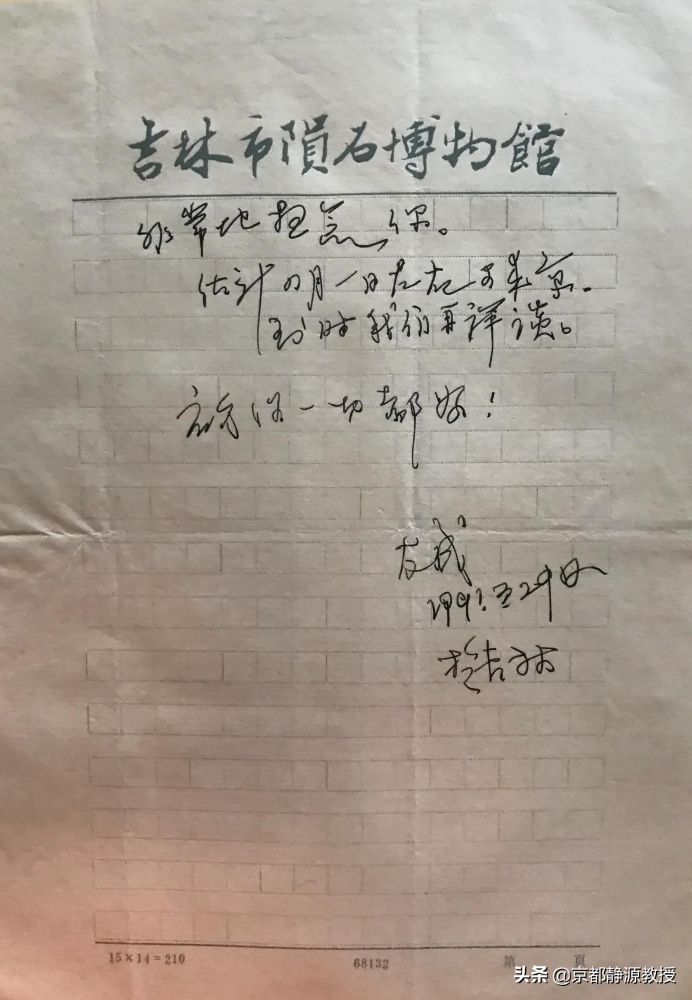 吉林市陨石博物館
非常地想念你。
估计4月1日左右可来京。
到时我们再詳谈。
祝你一切都好！
友成
1991.3.29日
于吉林
15×14=210
68132
第 頁
头条 @京都静源教授